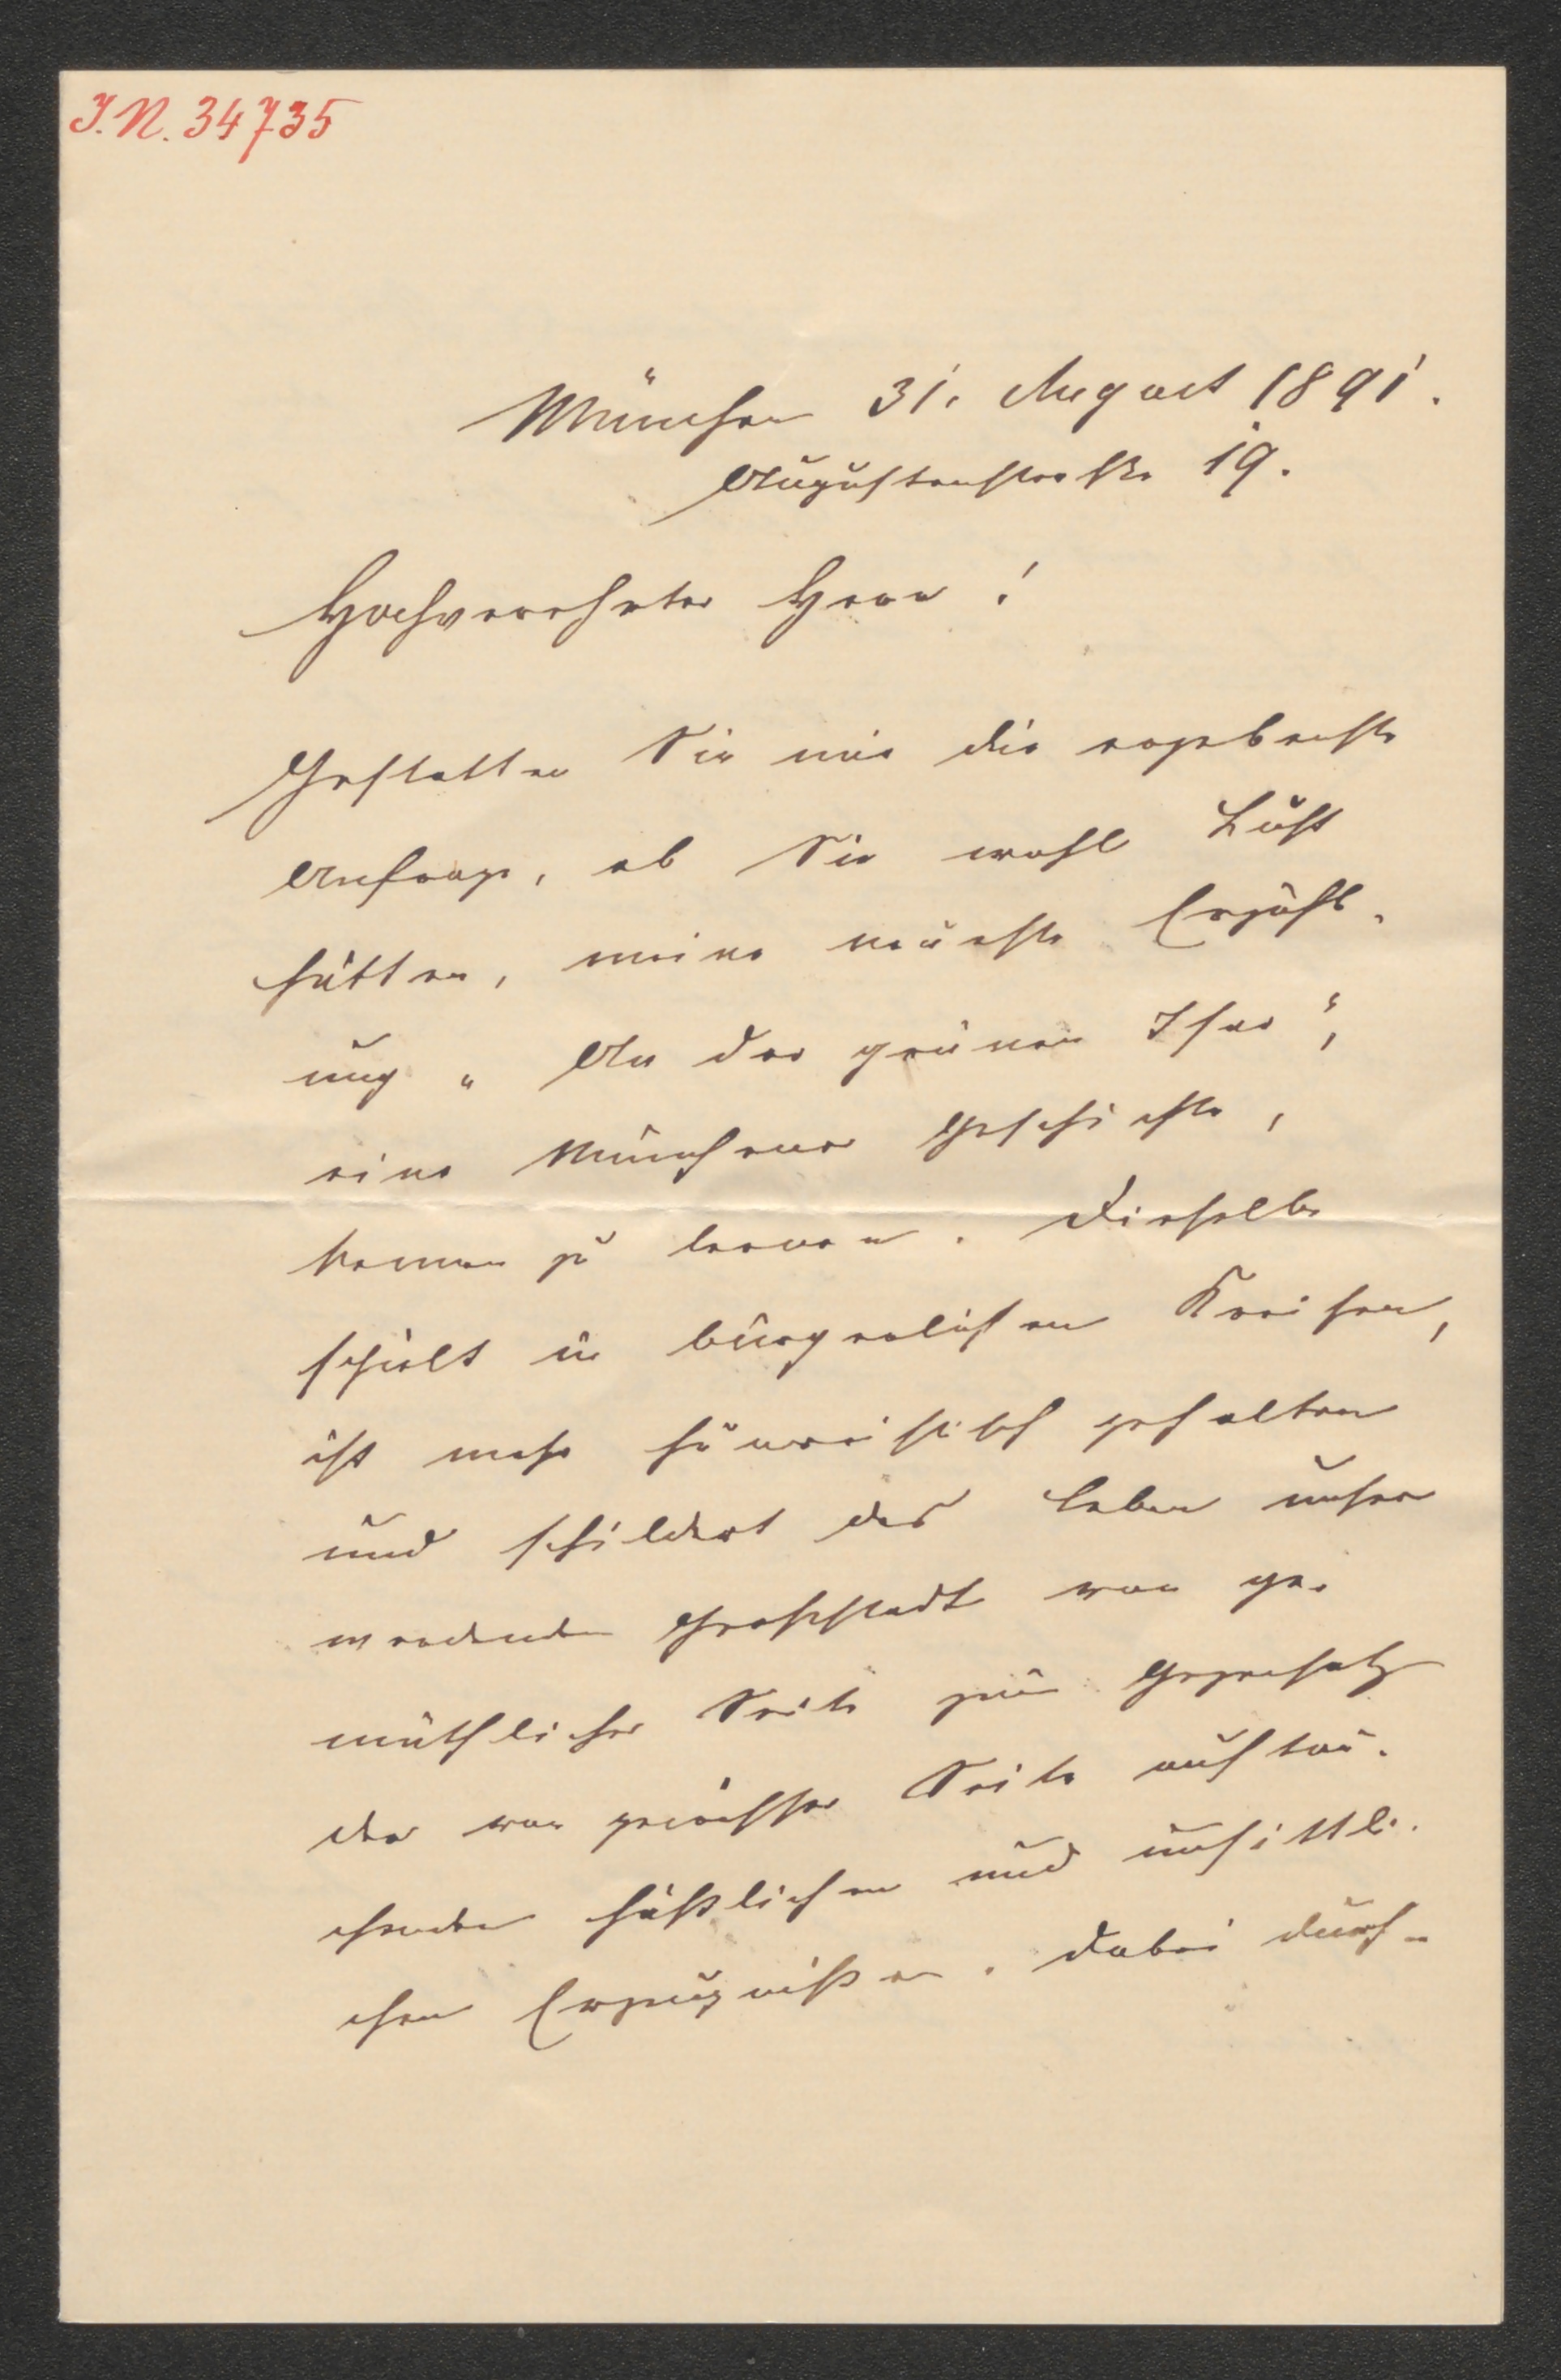 J.N. 34735
München 31. August 1891.
Augustenstraße 19.
Hochverehrter Herr!
Gestatten Sie mir die ergebenste
Anfrage, ob Sie wohl Lust
hätten, meine neueste Erzähl-
ung „An der grünen Isar“,
eine Münchener Geschichte,
kennen zu lernen. Dieselbe
spielt in bürgerlichen Kreisen,
ist mehr humoristisch gehalten
und schildert das Leben unser
werdenden Großstadt von ge-
müthlicher Seite zum Gegensatz
der von gewisser Seite auftau-
chenden häßlichen und unsittli-
chen Erzeugnißen. Dabei durch-